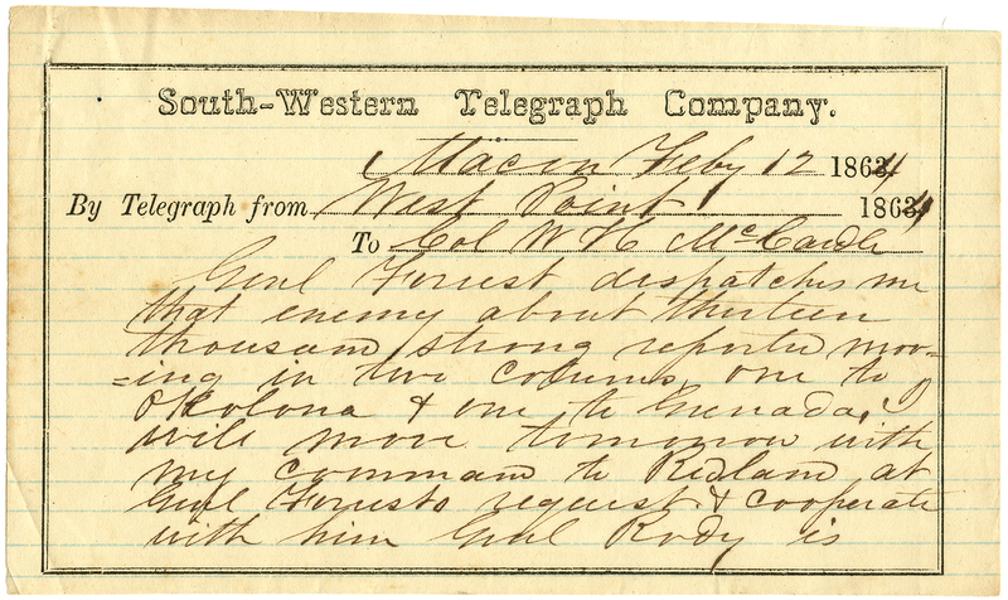 South-Western Telegraph Company.
Macon Feby 12 1864
By Telegraph from West Point 1864
To Col W H McCardle
Genl Forrest despatches me
that enemy about thirteen
thousand strong reported mov=
=ing in two columns, one to
Okolona & one to Grenada, I
will move tomorrow with
my command to Redland at
Genl Forrests request & cooperate
with him Genl Rody is